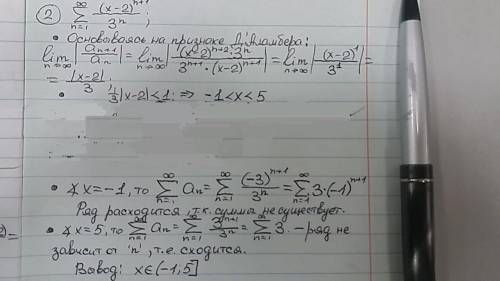 ② ∞∑n=1 (x-2)^(n+1) / 3^n ;
• Основываясь на признаке Д'Аламбера:
lim n→∞ |a_(n+1) / a_n| = lim n→∞ |(x-2)^(n+2) · 3^n / 3^(n+1) · (x-2)^(n+1)| = lim n→∞ |(x-2)^1 / 3^1| =
= |x-2| / 3
• 1/3 |x-2| < 1 ; ⇒ -1 < x < 5
• ∢ x = -1, то ∞∑n=1 a_n = ∞∑n=1 (-3)^(n+1) / 3^n = ∞∑n=1 3·(-1)^(n+1)
Ряд расходится, т.к. сумма не существует.
• ∢ x = 5, то ∞∑n=1 a_n = ∞∑n=1 3^(n+1) / 3^n = ∞∑n=1 3. - ряд не
зависит от "n", т.е. сходится.
Вывод: x ∈ (-1, 5]